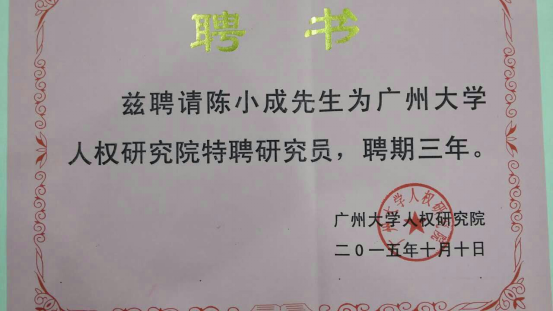 聘书
兹聘请陈小成先生为广州大学
人权研究院特聘研究员，聘期三年。
广州大学人权研究院
二0一五年十月十日
广州大学人权研究院